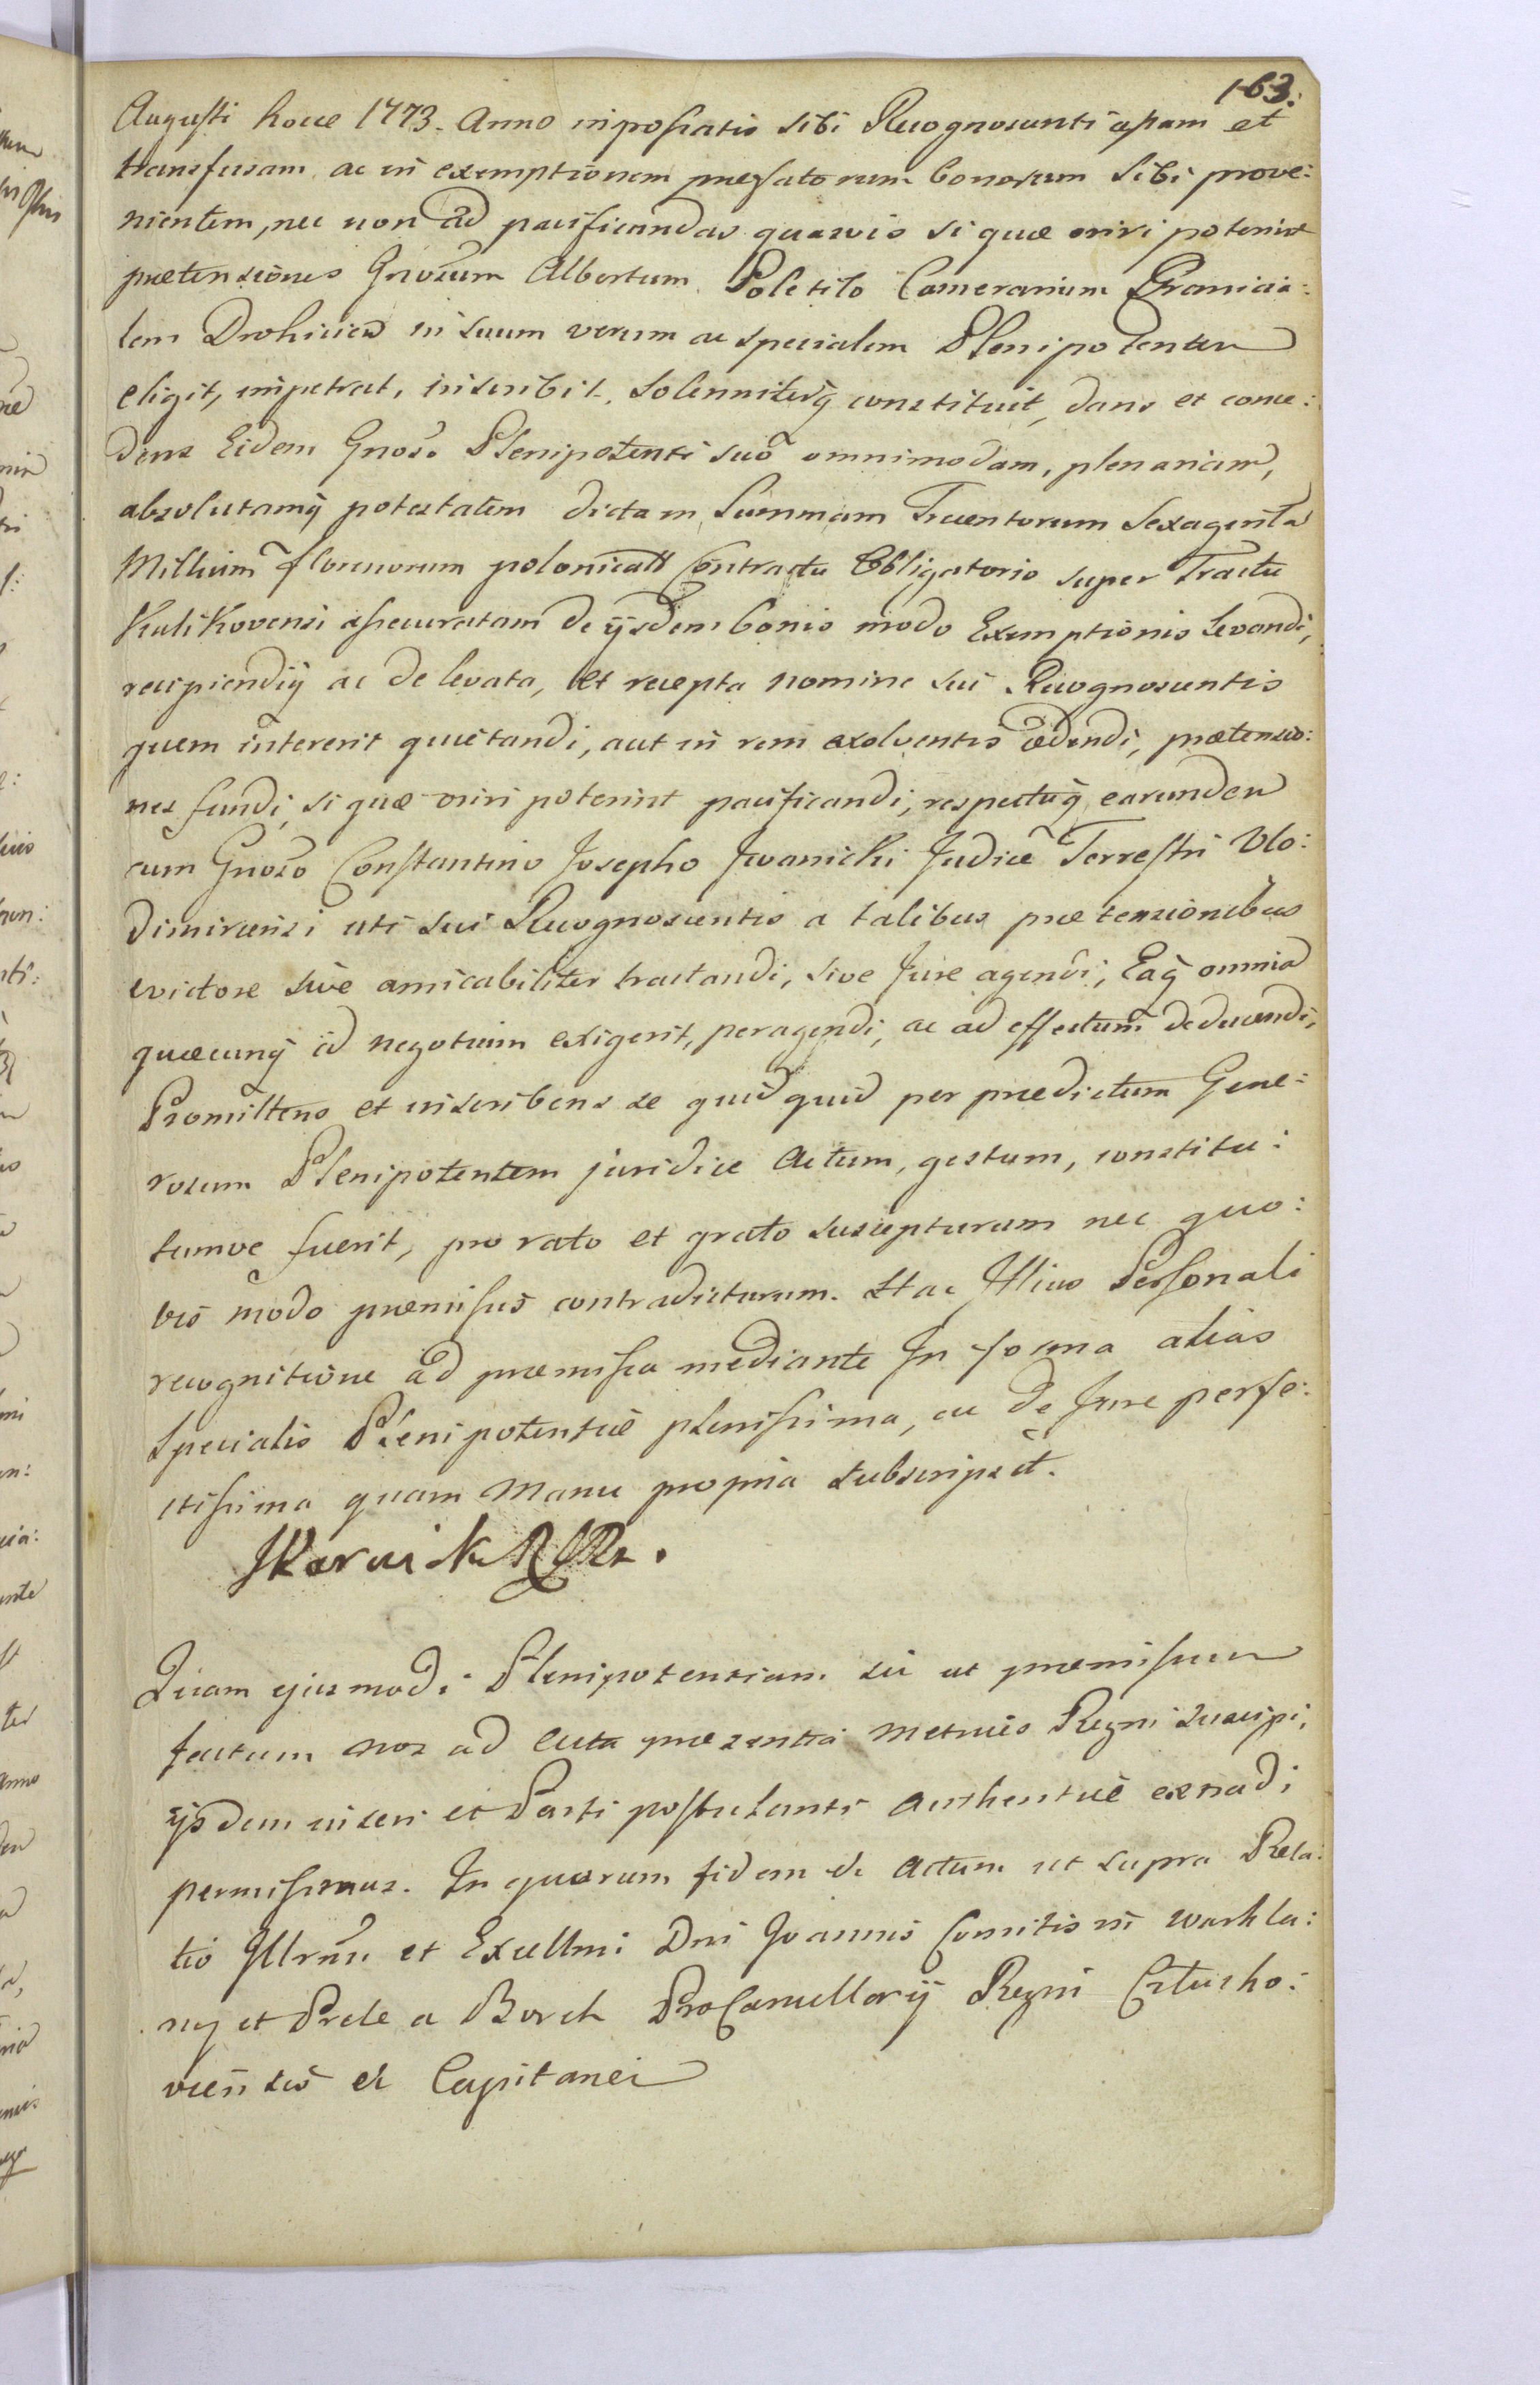 163.
Augusti hocce 1773. Anno in positatio sibi Recognoscenti apam et
transfusam ac in exemptionem praefatorum bonorum sibi prove:
nientem, nec non ad pacificandas quasvis si quae oriri poterint
praetensiones Gnosum Albertum Poletilo Camerarium Granicia:
lem Drohicien in suum verum ac specialem Plenipotenten
eligit, impetrat, inscribit, Solenniterq constituit, dans et conce:
dens Eidem Gnoso Plenipotenti suo omnimodam, plenariam,
absolutamq potestatem dictam Summam Trecentorum Sexaginta
Millium florenorum polonicall Contractu Obligatorio super Tractu
Kulikovensi assecuratam de ijsdem bonis modo Exemptionis levandi,
recipiendiq ac de levata, et recepta nomine sui Recognoscentis
quem intererit quietandi, aut in rem exolventis cedendi, praetensio:
nes fundi, si quae oriri poterint pacificandi, respectuq earunden
cum Gnoso Constantino Josepho Iwanicki Judice Terrestri Vlo:
dimiriensi uti sui Recognoscentis a talibus praetensionibus
evictore sive amicabiliter tractandi, sive Jure agendi, Eaq omnia
quaecunq id negotium exigerit, peragendi, ac ad effectum deducendi,
Promittens et inscribens se quidquid per praedictum Gene:
rosum Plenipotentem juridice Actum, gestum, constitu:
tumve fuerit, pro rato et grato suscepturum nec quo:
vis modo praemissis contradicturum. Hac Illius Personali
recognitione ad praemissa mediante In forma alias
Specialis Plenipotentiae plenissima, ac de Jure perfe:
ctissima quam Manu propria subscripsit.
Quam ejusmodi Plenipotentiam sic ut praemissum
factum nos ad Acta praesentia Metrices Regni suscipi,
ijsdem inseri et Parti postulanti authentice extradi
permisimus. In quorum fidem &c Actum ut supra Rela:
tio Illrmi et Excellmi Dni Joannis Comitis in Warkla:
ny et Prele a Borch ProCancellarij Regni Lstusko:
viensis &c Capitanei